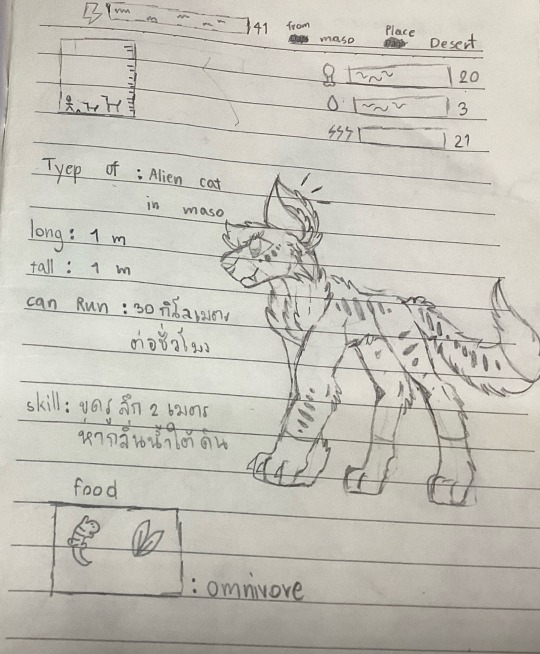 41 from maso Place Desert
20
3
21
Tyep of : Alien cat
in maso
long : 1 m
tall : 1 m
can Run : 30 กิโลเมตร
ต่อชั่วโมง
skill : ขุดรู ลึก 2 เมตร
หากลิ่นน้ำใต้ดิน
food
: omnivore